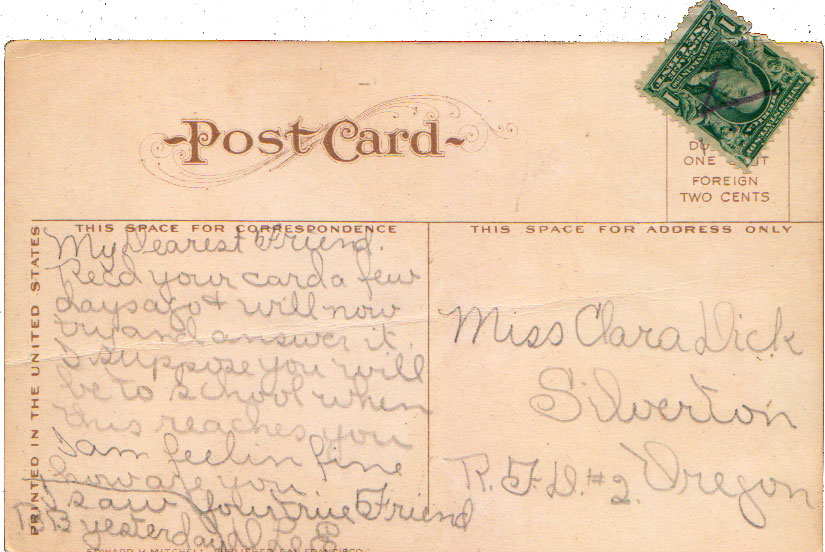 Post Card
DO
ONE
FOREIGN
TWO CENTS
THIS SPACE FOR CORRESPONDENCE
THIS SPACE FOR ADDRESS ONLY
PRINTED IN THE UNITED STATES
My Dearest Friend.
Recd your card a few
days ago & will now
try and answer it.
I suppose you will
be to school when
this reaches you
I am feelin fine
how are you
I saw your true Friend
yesterday
Miss Clara Dick
Silverton
R.F.D. #2. Oregon
EDWARD H. MITCHELL, PUBLISHER, SAN FRANCISCO